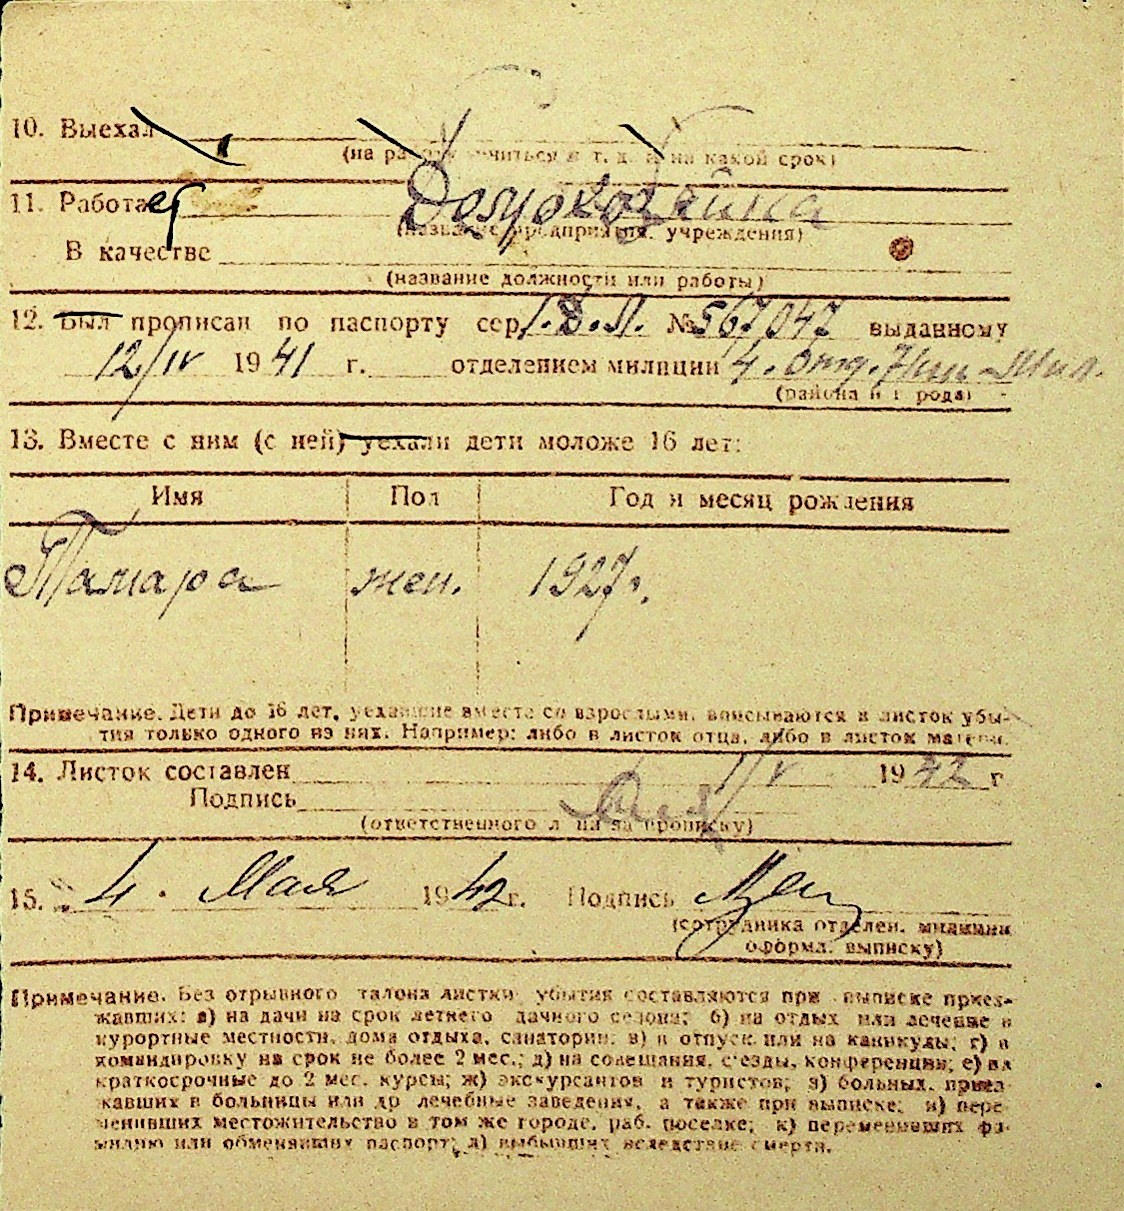 10. Выехал
(на работу учиться и т. д. и на какой срок)
11. Работает Домохозяйка
(название предприятия, учреждения)
В качестве
(название должности или работы)
12. Был прописан по паспорту сер. № 567047 выданному
12/IV 1941 г. отделением милиции 4. отд.
(района и города)
13. Вместе с ним (с ней) уехали дети моложе 16 лет:
Имя Пол Год и месяц рождения
Тамара жен. 1927 г.
Примечание. Дети до 16 лет, уехавшие вместе со взрослыми, вписываются в листок убы-
тия только одного из них. Например: либо в листок отца, либо в листок матери.
14. Листок составлен 1/V 1942 г
Подпись
(ответственного лица за прописку)
15. 4. Мая 1942 г. Подпись
(сотрудника отделен. милиции
оформл. выписку)
Примечание. Без отрывного талона листки убытия составляются при выписке приез-
жавших: а) на дачи на срок летнего дачного сезона; б) на отдых или лечение в
курортные местности, дома отдыха, санатории; в) в отпуск или на каникулы; г) в
командировку на срок не более 2 мес.; д) на совещания, с'езды, конференции; е) на
краткосрочные до 2 мес. курсы; ж) экскурсантов и туристов; з) больных, приез-
жавших в больницы или др лечебные заведения, а также при выписке; и) пере-
менивших местожительство в том же городе, раб. поселке; к) переменивших фа-
милию или обменявших паспорт; л) выбывших вследствие смерти.